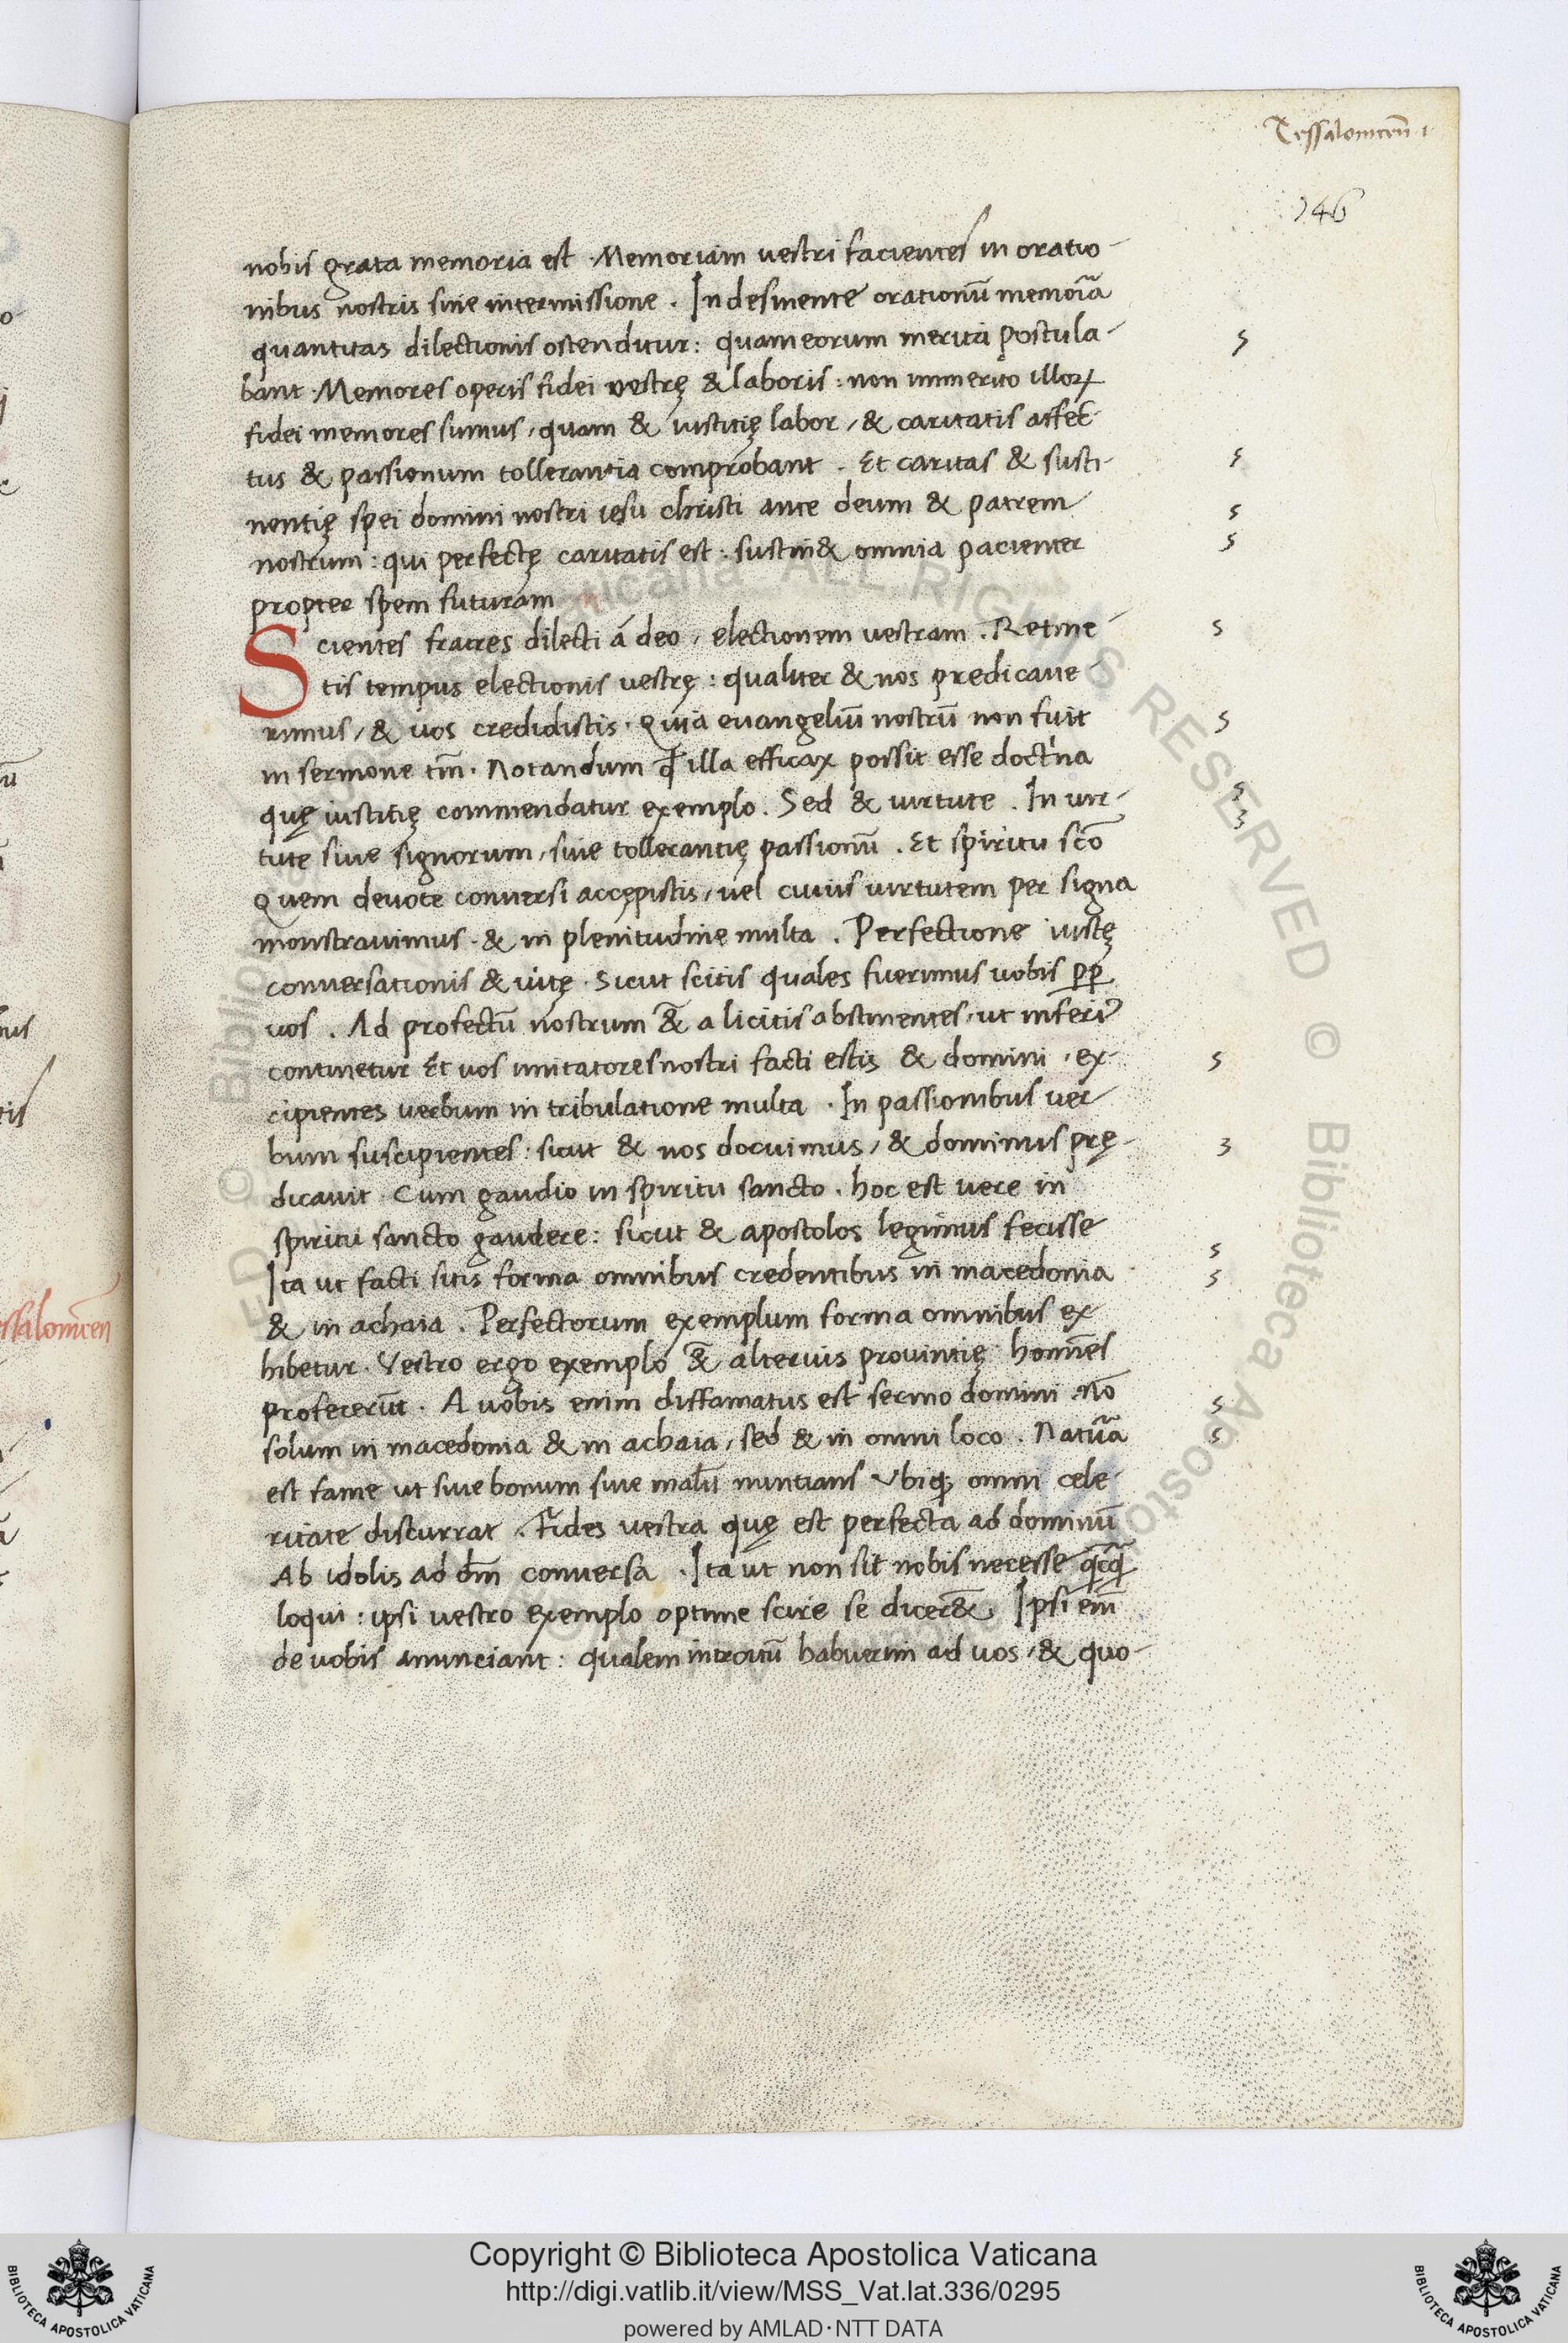 Tessalonicen̄ 1
146
nobis grata memoria est · Memoriam vestri facientes in oratio-
nibus nostris sine intermissione . Indesinente orationū memoīa
quantitas dilectionis ostenditur : quam eorum merita postula-
bant · Memores operis fidei vestrę & laboris : non immerito illoꝝ
fidei memores sumus , quam & iustitię labor , & caritatis affec-
tus & passionum tollerantia comprobant . Et caritas & susti-
nentię spei domini nostri iesu christi ante deum & patrem
nostrum : qui perfectę caritatis est : sustin& omnia pacienter
propter spem futuram
Scientes fratres dilecti á deo , electionem vestram . Retine-
tis tempus electionis vestrę : qualiter & nos predicaue-
rimus , & uos credidistis · Quia euangeliū nostrū non fuit
in sermone tm̄ · Notandum ꝙ illa efficax possit esse doctina
quę iustitię commendatur exemplo . Sed & uirtute . In uir-
tute siue signorum , siue tollerantię passionū . Et spiritu sc̄o
Quem deuote conuersi accępistis , uel cuius uirtutem per signa
monstrauimus · & in plenitudine multa . Perfectione iustę
conuersationis & uitę · Sicut scitis quales fuerimus uobis ꝓꝑ
uos . Ad profectū nostrum &̄ a licitis abstinentes , ut inferi᷒
continetur Et uos imitatores nostri facti estis & domini , ex-
cipientes uerbum in tribulatione multa · In passionibus uer-
bum suscipientes : sicut & nos docuimus , & dominus prę-
dicauit · Cum gaudio in spiritu sancto . hoc est vere in
spiritu sancto gaudere : sicut & apostolos legimus fecisse
Ita ut facti sitis forma omnibus credentibus in macedonia
& in achaia . Perfectorum exemplum forma omnibus ex-
hibetur . Vestro ergo exemplo &̄ alterius prouintię homīes
profecerūt . A uobis enim diffamatus est sermo domini nō
solum in macedonia & in achaia , sed & in omni loco . Natuā
est fame ut siue bonum siue malū nuntians Vbiqꝫ omni cele-
ritate discurrat . Fides vestra quę est perfecta ad dominū
Ab idolis ad dm̄ conuersa . Ita ut non sit nobis necesse
loqui : ipsi vestro exemplo optime scire se dicer& . Ipsi eni᷒
de uobis annunciant : qualem introitū habuerim ad uos , & quo-
Copyright © Biblioteca Apostolica Vaticana
http://digi.vatlib.it/view/MSS_Vat.lat.336/0295
powered by AMLAD·NTT DATA
BIBLIOTECA APOSTOLICA VATICANA
BIBLIOTECA APOSTOLICA VATICANA